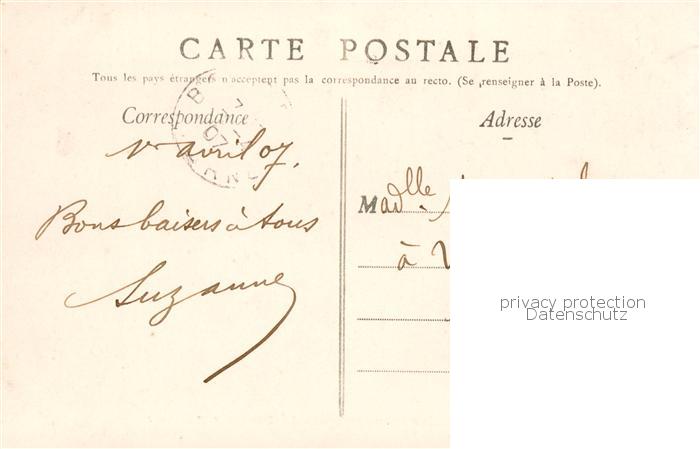 CARTE POSTALE
Tous les pays étrangers n'acceptent pas la correspondance au recto. (Se renseigner à la Poste).
Correspondance
Adresse
avril 07.
Bons baisers à tous
Suzanne
Madlle
à
privacy protection
Datenschutz